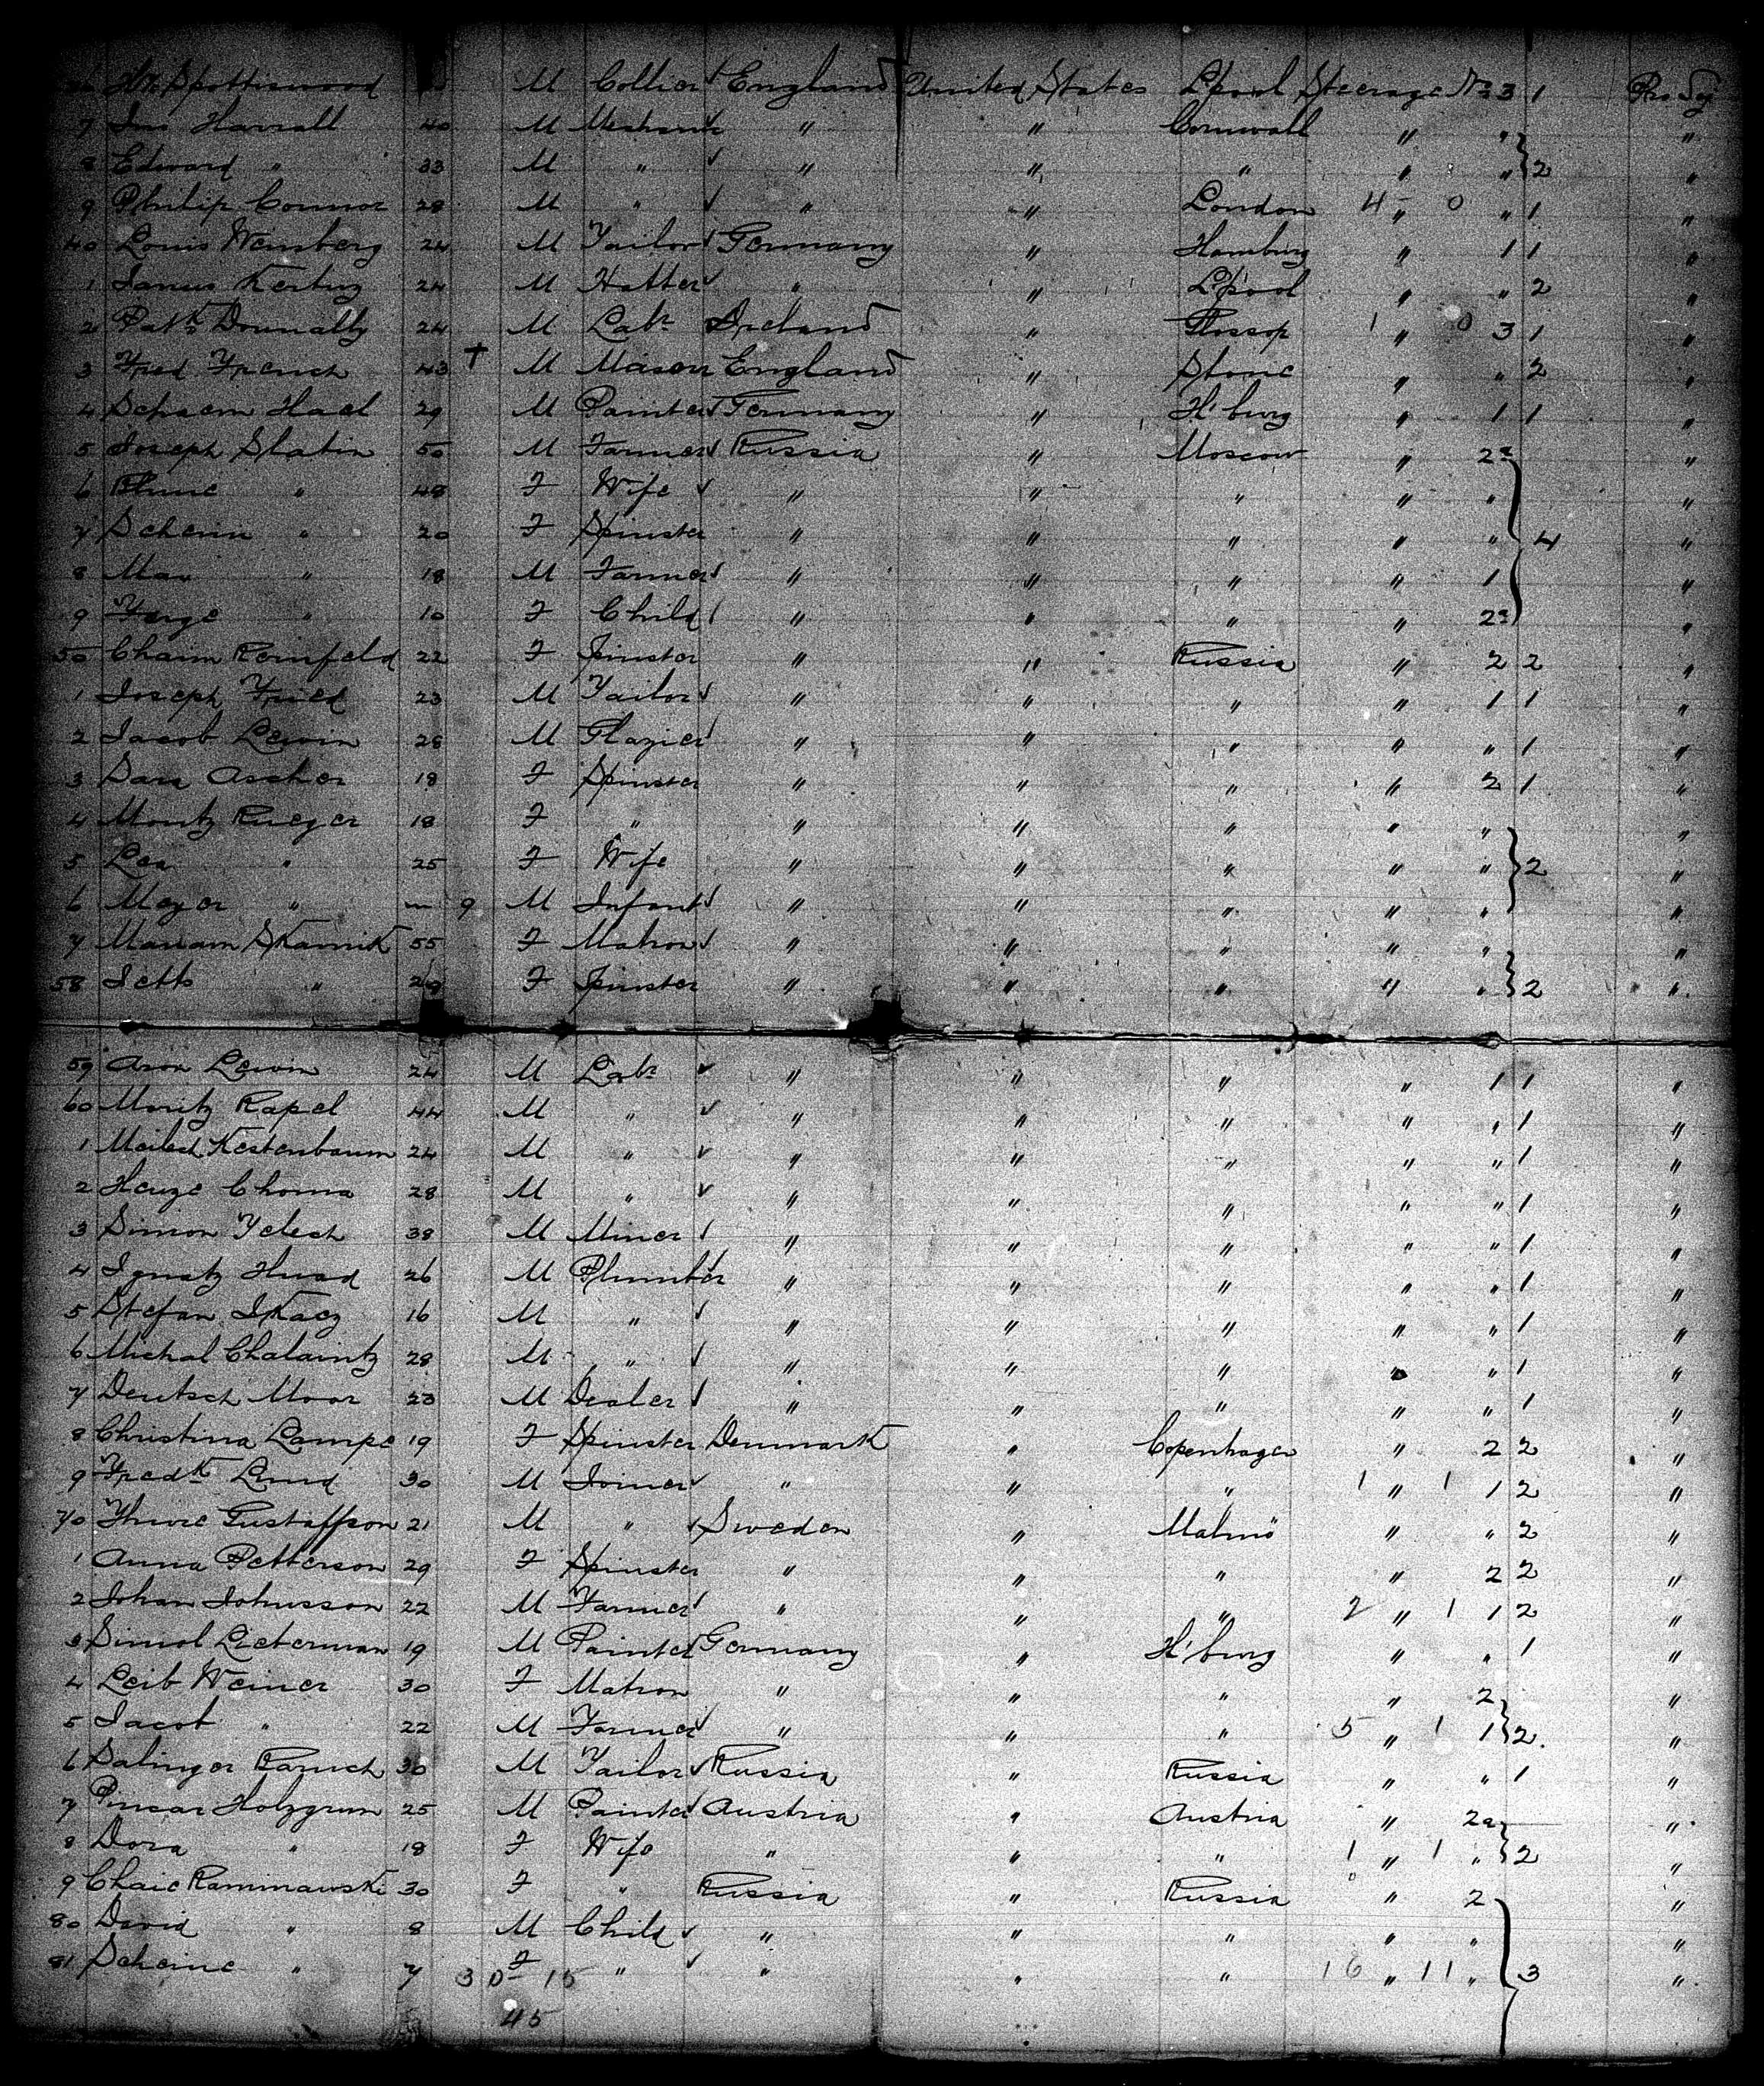 Spottiswood M Collier England United States L'pool Steerage No 3 1 Pro Sej
7 Jno Harrall 40 M Mechanic " " Cornwall " "
8 Edward " 33 M " " " " " " 2 "
9 Philip Connor 28 M " " " London 4 " 0 " 1 "
40 Louis Weinberg 24 M Tailor Germany " Hamburg " 1 1 "
1 James 24 M Hatter " " L'pool " " 2 "
2 Patk Donnally 24 M Labr Ireland " Glossop 1 " 0 3 1 "
3 Fred French 43 + M Mason England " Stone " " 2 "
4 Hael 29 M Painter Germany " H'burg " 1 1 "
5 Joseph Slatin 50 M Farmer Russia " Moscow " 2a "
6 Blume " 48 F Wife " " " " " "
7 Schevin " 20 F Spinster " " " " " 4 "
8 Max " 18 M Farmer " " " " 1 "
9 Feige " 10 F Child " " " " 2a "
50 Chaim Reinfeld 22 F Spinster " " Russia " 2 2 "
1 Joseph Fried 23 M Tailor " " " " 1 1 "
2 Jacob Lewin 28 M Glazier " " " " " 1 "
3 Sara Ascher 18 F Spinster " " " " 2 1 "
4 Moritz Rueger 18 F " " " " " " "
5 Lea " 25 F Wife " " " " " 2 "
6 Meyer " 9 M Infant " " " " " "
7 Mariam Skarnik 55 F Matron " " " " " "
58 Jette " 20 F Spinster " " " " " 2 "
59 Aron Lewin 24 M Labr " " " " 1 1 "
60 Moritz Rapel 44 M " " " " " " 1 "
1 Meilech Kestenbaum 24 M " " " " " " 1 "
2 Henze Choma 28 M " " " " " " 1 "
3 Simon Telech 38 M Miner " " " " " 1 "
4 Ignatz Husad 26 M Plumber " " " " " 1 "
5 Stefan Tkacz 16 M " " " " " " 1 "
6 Michal Chalaintz 28 M " " " " " " 1 "
7 Deutsch Moor 23 M Dealer " " " " " 1 "
8 Christina Lampe 19 F Spinster Denmark " Copenhagen " 2 2 "
9 Fredk Lund 30 M Joiner " " " 1 " 1 1 2 "
70 Thure Gustaffson 21 M " Sweden " Malmö " " 2 "
1 Anna Petterson 29 F Spinster " " " " 2 2 "
2 Johan Johnsson 22 M Farmer " " " 2 " 1 1 2 "
3 Simol Lieberman 19 M Painter Germany " H'burg " " 1 "
4 Leib Weiner 30 F Matron " " " " 2 "
5 Jacob " 22 M Farmer " " " 5 " 1 1 2. "
6 Salinger Baruch 30 M Tailor Russia " Russia " " 1 "
7 Pincar Holzgrun 25 M Painter Austria " Austria " 2a "
8 Dora " 18 F Wife " " " 1 " 1 " 2 "
9 Chaie Kaminawski 30 F " Russia " Russia " 2 "
80 David " 8 M Child " " " " " "
81 Scheine " 7 F " " " " 16 " 11 " 3 "
30 - 15
45